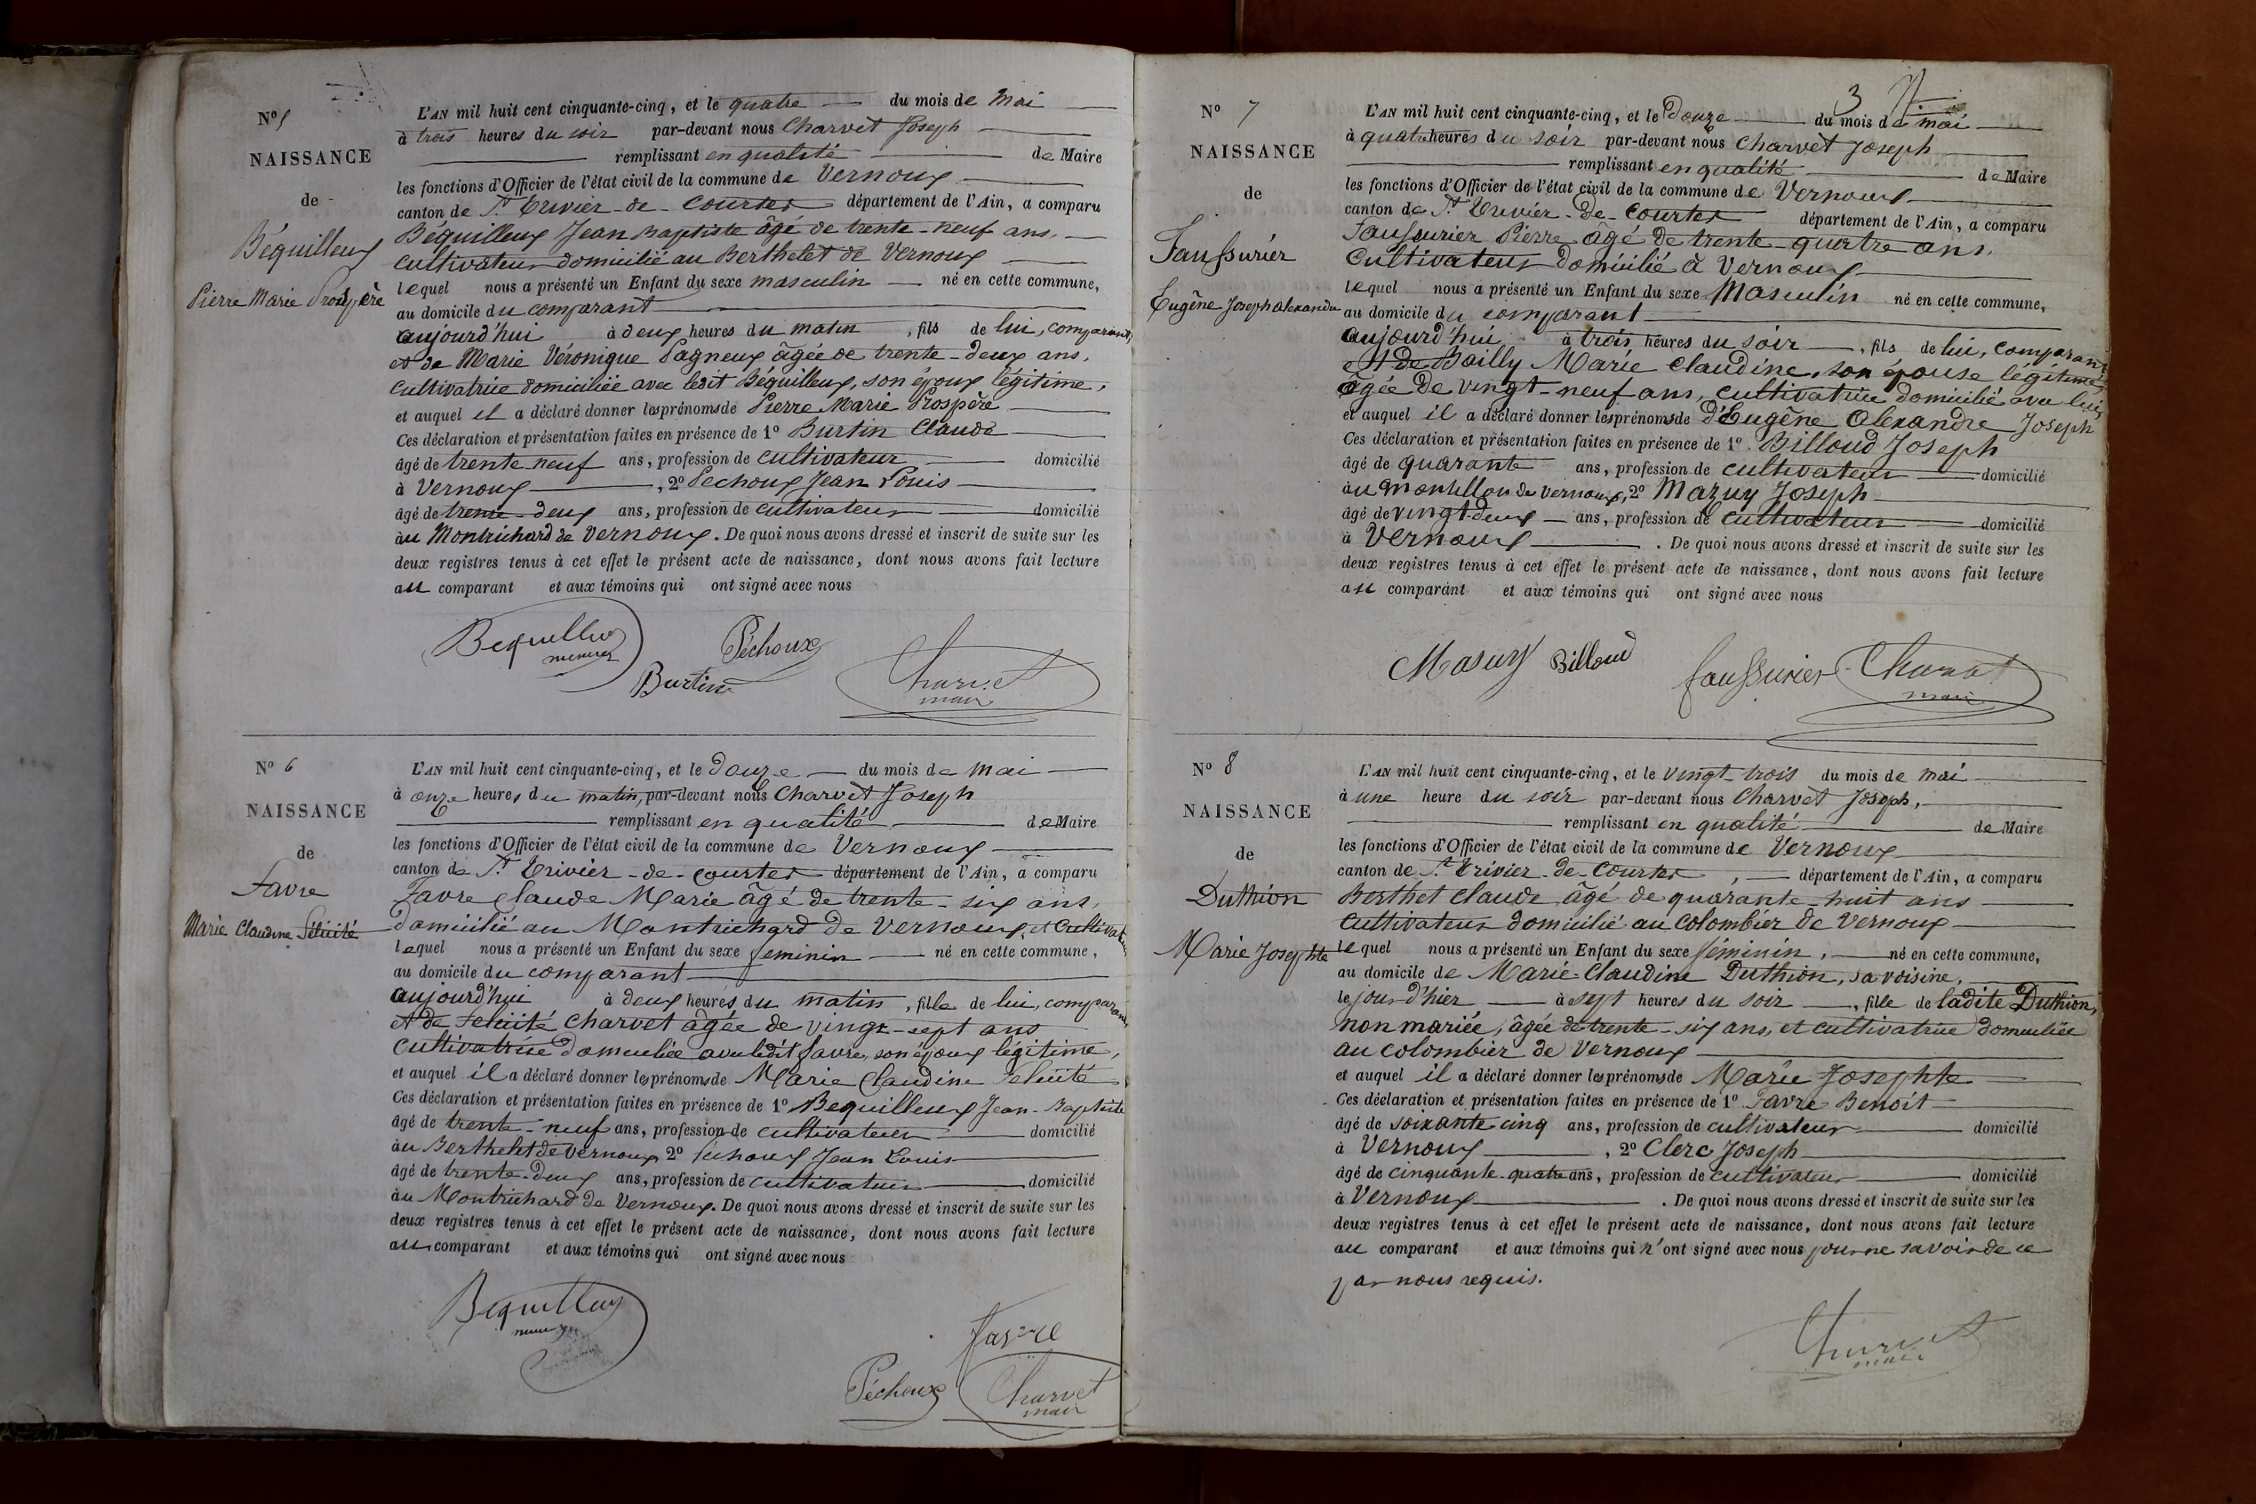 N° 5
NAISSANCE
de
Béquilleux
Pierre Marie Prospère
L'AN mil huit cent cinquante-cinq, et le quatre du mois de Mai
à trois heures du soir par-devant nous Charvet Joseph
remplissant en qualité de Maire
les fonctions d'Officier de l'état civil de la commune de Vernoux
canton de St Trivier-de-Courtes département de l'Ain, a comparu
Béquilleux Jean Baptiste âgé de trente-neuf ans,
cultivateur domicilié au Berthelet de Vernoux
lequel nous a présenté un Enfant du sexe masculin né en cette commune,
au domicile du comparant
aujourd'hui à deux heures du matin, fils de lui, comparant,
et de Marie Véronique Pagneux âgée de trente-deux ans,
cultivatrice domiciliée avec ledit Béquilleux, son époux légitime,
et auquel il a déclaré donner les prénoms de Pierre Marie Prospère
Ces déclaration et présentation faites en présence de 1° Burtin Claude
âgé de trente neuf ans, profession de cultivateur domicilié
à Vernoux, 2° Pechoux Jean Louis
âgé de trente-deux ans, profession de cultivateur domicilié
au Montrichard de Vernoux. De quoi nous avons dressé et inscrit de suite sur les
deux registres tenus à cet effet le présent acte de naissance, dont nous avons fait lecture
au comparant et aux témoins qui ont signé avec nous
Bequilleux
Péchoux
Burtin
Charvet
maire
N° 6
NAISSANCE
de
Favre
Marie Claudine Félicité
L'AN mil huit cent cinquante-cinq, et le douze du mois de Mai
à onze heures du matin, par-devant nous Charvet Joseph
remplissant en qualité de Maire
les fonctions d'Officier de l'état civil de la commune de Vernoux
canton de St Trivier-de-Courtes département de l'Ain, a comparu
Favre Claude Marie âgé de trente-six ans,
domicilié au Montrichard de Vernoux, et cultivateur
lequel nous a présenté un Enfant du sexe feminin né en cette commune,
au domicile du comparant
aujourd'hui à deux heures du matin, fille de lui, comparant,
et de Felicité Charvet âgée de vingt-sept ans
cultivatrice domiciliée avec ledit favre, son époux légitime,
et auquel il a déclaré donner les prénoms de Marie Claudine Felicité
Ces déclaration et présentation faites en présence de 1° Bequilleux Jean-Baptiste
âgé de trente-neuf ans, profession de cultivateur domicilié
au Berthelet de Vernoux 2° Pechoux Jean Louis
âgé de trente-deux ans, profession de cultivateur domicilié
au Montrichard de Vernoux. De quoi nous avons dressé et inscrit de suite sur les
deux registres tenus à cet effet le présent acte de naissance, dont nous avons fait lecture
au comparant et aux témoins qui ont signé avec nous
Bequilleux
favre
Péchoux
Charvet
maire
3
N° 7
NAISSANCE
de
Faussurier
Eugène Joseph Alexandre
L'AN mil huit cent cinquante-cinq, et le Douze du mois de mai
à quatre heures du soir par-devant nous Charvet Joseph
remplissant en qualité de Maire
les fonctions d'Officier de l'état civil de la commune de Vernoux
canton de St Trivier-de-Courtes département de l'Ain, a comparu
Faussurier Pierre âgé de trente-quatre ans,
cultivateur domicilié à Vernoux
lequel nous a présenté un Enfant du sexe Masculin né en cette commune,
au domicile du comparant
aujourd'hui, à trois heures du soir, fils de lui, comparant
et de Bailly Marie Claudine, son épouse légitime,
âgée de vingt-neuf ans, cultivatrice domicilié avec lui,
et auquel il a déclaré donner les prénoms de d'Eugène Alexandre Joseph
Ces déclaration et présentation faites en présence de 1° Billoud Joseph
âgé de quarante ans, profession de cultivateur domicilié
au Montillon de Vernoux, 2° Mazuy Joseph
âgé de vingt-deux ans, profession de cultivateur domicilié
à Vernoux. De quoi nous avons dressé et inscrit de suite sur les
deux registres tenus à cet effet le présent acte de naissance, dont nous avons fait lecture
au comparant et aux témoins qui ont signé avec nous
Masuy Billoud
faussurier
Charvet
maire
N° 8
NAISSANCE
de
Duthion
Marie Josephte
L'AN mil huit cent cinquante-cinq, et le vingt-trois du mois de mai
à une heure du soir par-devant nous Charvet Joseph,
remplissant en qualité de Maire
les fonctions d'Officier de l'état civil de la commune de Vernoux
canton de St Trivier-de-Courtes, département de l'Ain, a comparu
Berthet Claude âgé de quarante-huit ans
cultivateur domicilié au colombier de Vernoux
lequel nous a présenté un Enfant du sexe féminin, né en cette commune,
au domicile de Marie-Claudine Duthion, sa voisine,
le jour d'hier à sept heures du soir, fille de ladite Duthion,
non mariée, âgée de trente-six ans, et cultivatrice domiciliée
au colombier de Vernoux
et auquel il a déclaré donner les prénoms de Marie Josephte
Ces déclaration et présentation faites en présence de 1° Favre Benoit
âgé de soixante cinq ans, profession de cultivateur domicilié
à Vernoux, 2° Clerc Joseph
âgé de cinquante-quatre ans, profession de cultivateur domicilié
à Vernoux. De quoi nous avons dressé et inscrit de suite sur les
deux registres tenus à cet effet le présent acte de naissance, dont nous avons fait lecture
au comparant et aux témoins qui n'ont signé avec nous pour ne savoir de ce
par nous requis.
Charvet
maire